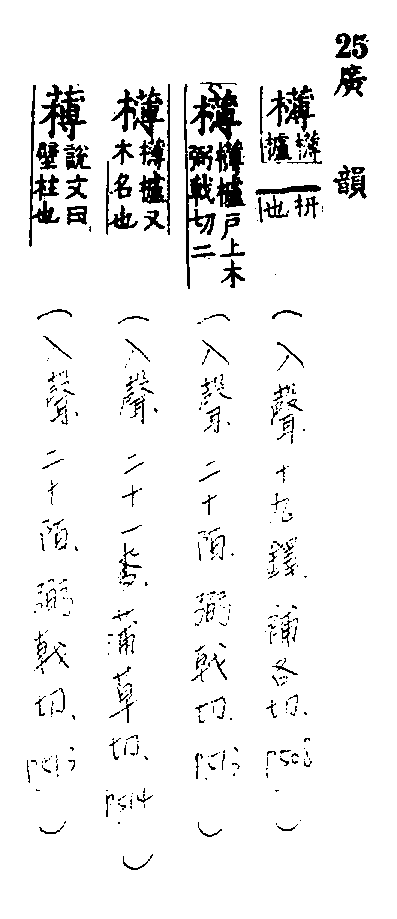 25
廣韻
欂 欂櫨 枅也
(入聲.十九鐸.補各切.p508)
欂 欂櫨戶上木弼戟切二
(入聲.二十陌.弼戟切.p513)
欂 欂櫨又木名也
(入聲.二十一麥.蒲革切.p514)
㯙 說文曰壁柱也
(入聲.二十陌.弼戟切.p513)